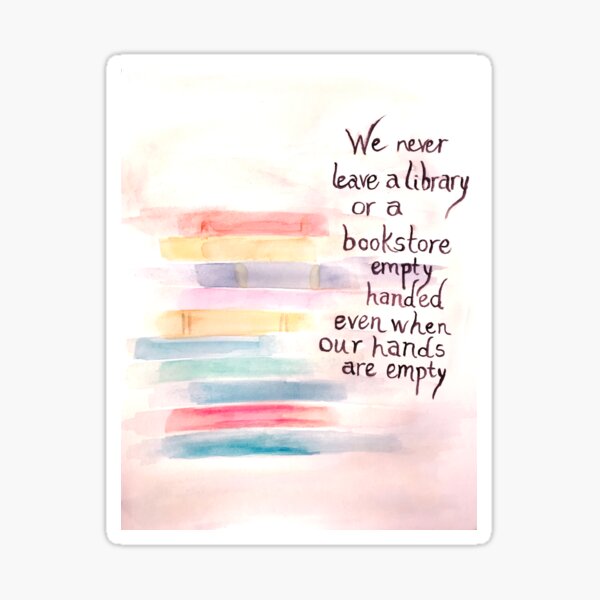 We never
leave a library
or a
bookstore
empty
handed
even when
our hands
are empty